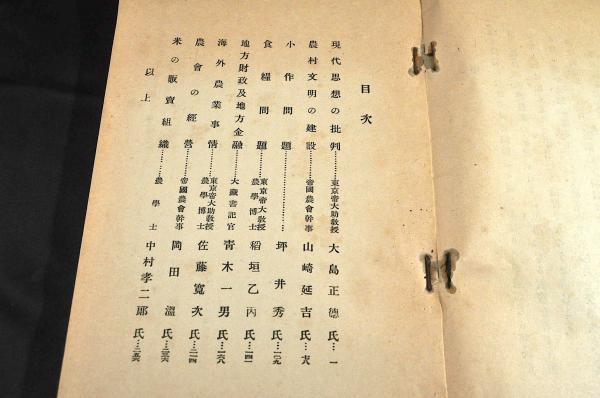 目次
現代思想の批判………東京帝大助教授 大島正德氏…一
農村文明の建設………帝國農會幹事 山崎延吉氏…六
小作問題………………坪井秀氏…一〇九
食糧問題………東京帝大教授 農學博士 稻垣乙丙氏…一四一
地方財政及地方金融……大藏書記官 青木一男氏…一六八
海外農業事情………東京帝大助教授 農學博士 佐藤寬次氏…二一四
農會の經營………帝國農會幹事 岡田溫氏…二三六
米の販賣組織………農學士 中村孝二郎氏…二五六
以上